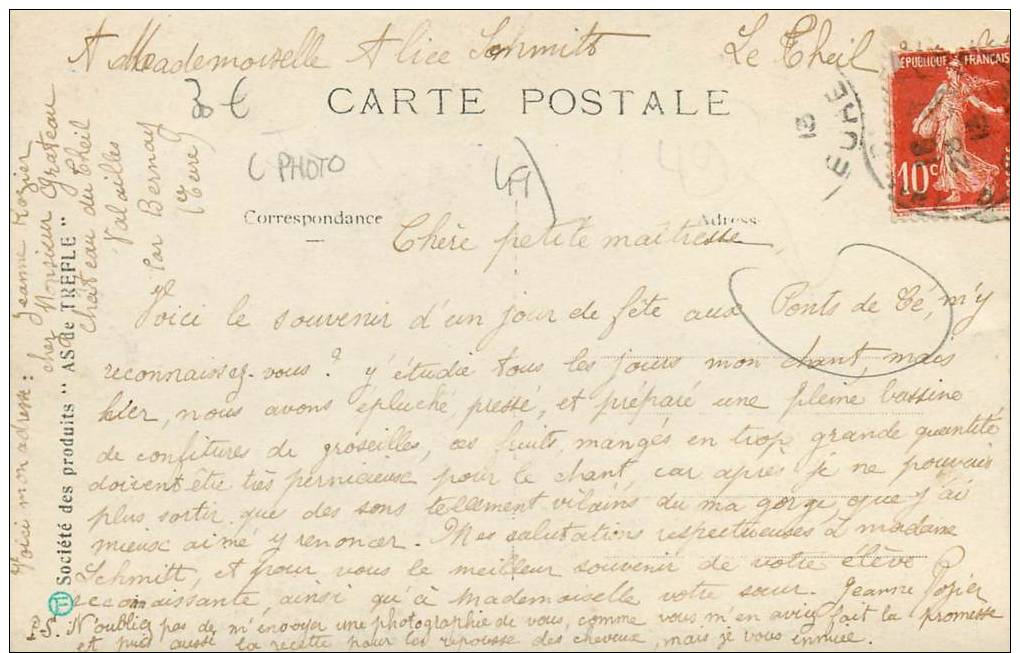 A Mademoiselle Alice Schmitt Le Theil
3 €
CARTE POSTALE
C PHOTO
49
Correspondance
Adresse
EURE
REPUBLIQUE FRANÇAISE
10c
Chère petite maîtresse,
Voici le souvenir d'un jour de fête aux Ponts de Cé, m'y
reconnaissez-vous ? J'étudie tous les jours mon chant, mais
hier, nous avons épluché, pressé, et préparé une pleine bassine
de confitures de groseilles, ces fruits mangés en trop grande quantité
doivent être très pernicieux pour le chant, car après je ne pouvais
plus sortir que des sons tellement vilains du ma gorge, que j'ai
mieux aimé y renoncer. Mes salutations respectueuses à madame
Schmitt, et pour vous le meilleur souvenir de votre élève
reconnaissante, ainsi qu'à Mademoiselle votre sœur. Jeanne Rozier
P.S. N'oubliez pas de m'envoyer une photographie de vous, comme vous m'en aviez fait la promesse
et puis aussi la recette pour la repousse des cheveux, mais je vous ennuie.
Voici mon adresse : Jeanne Rozier
chez Monsieur Grateau
château du Theil
Valailles
par Bernay
(Eure)
Société des produits " AS de TREFLE "